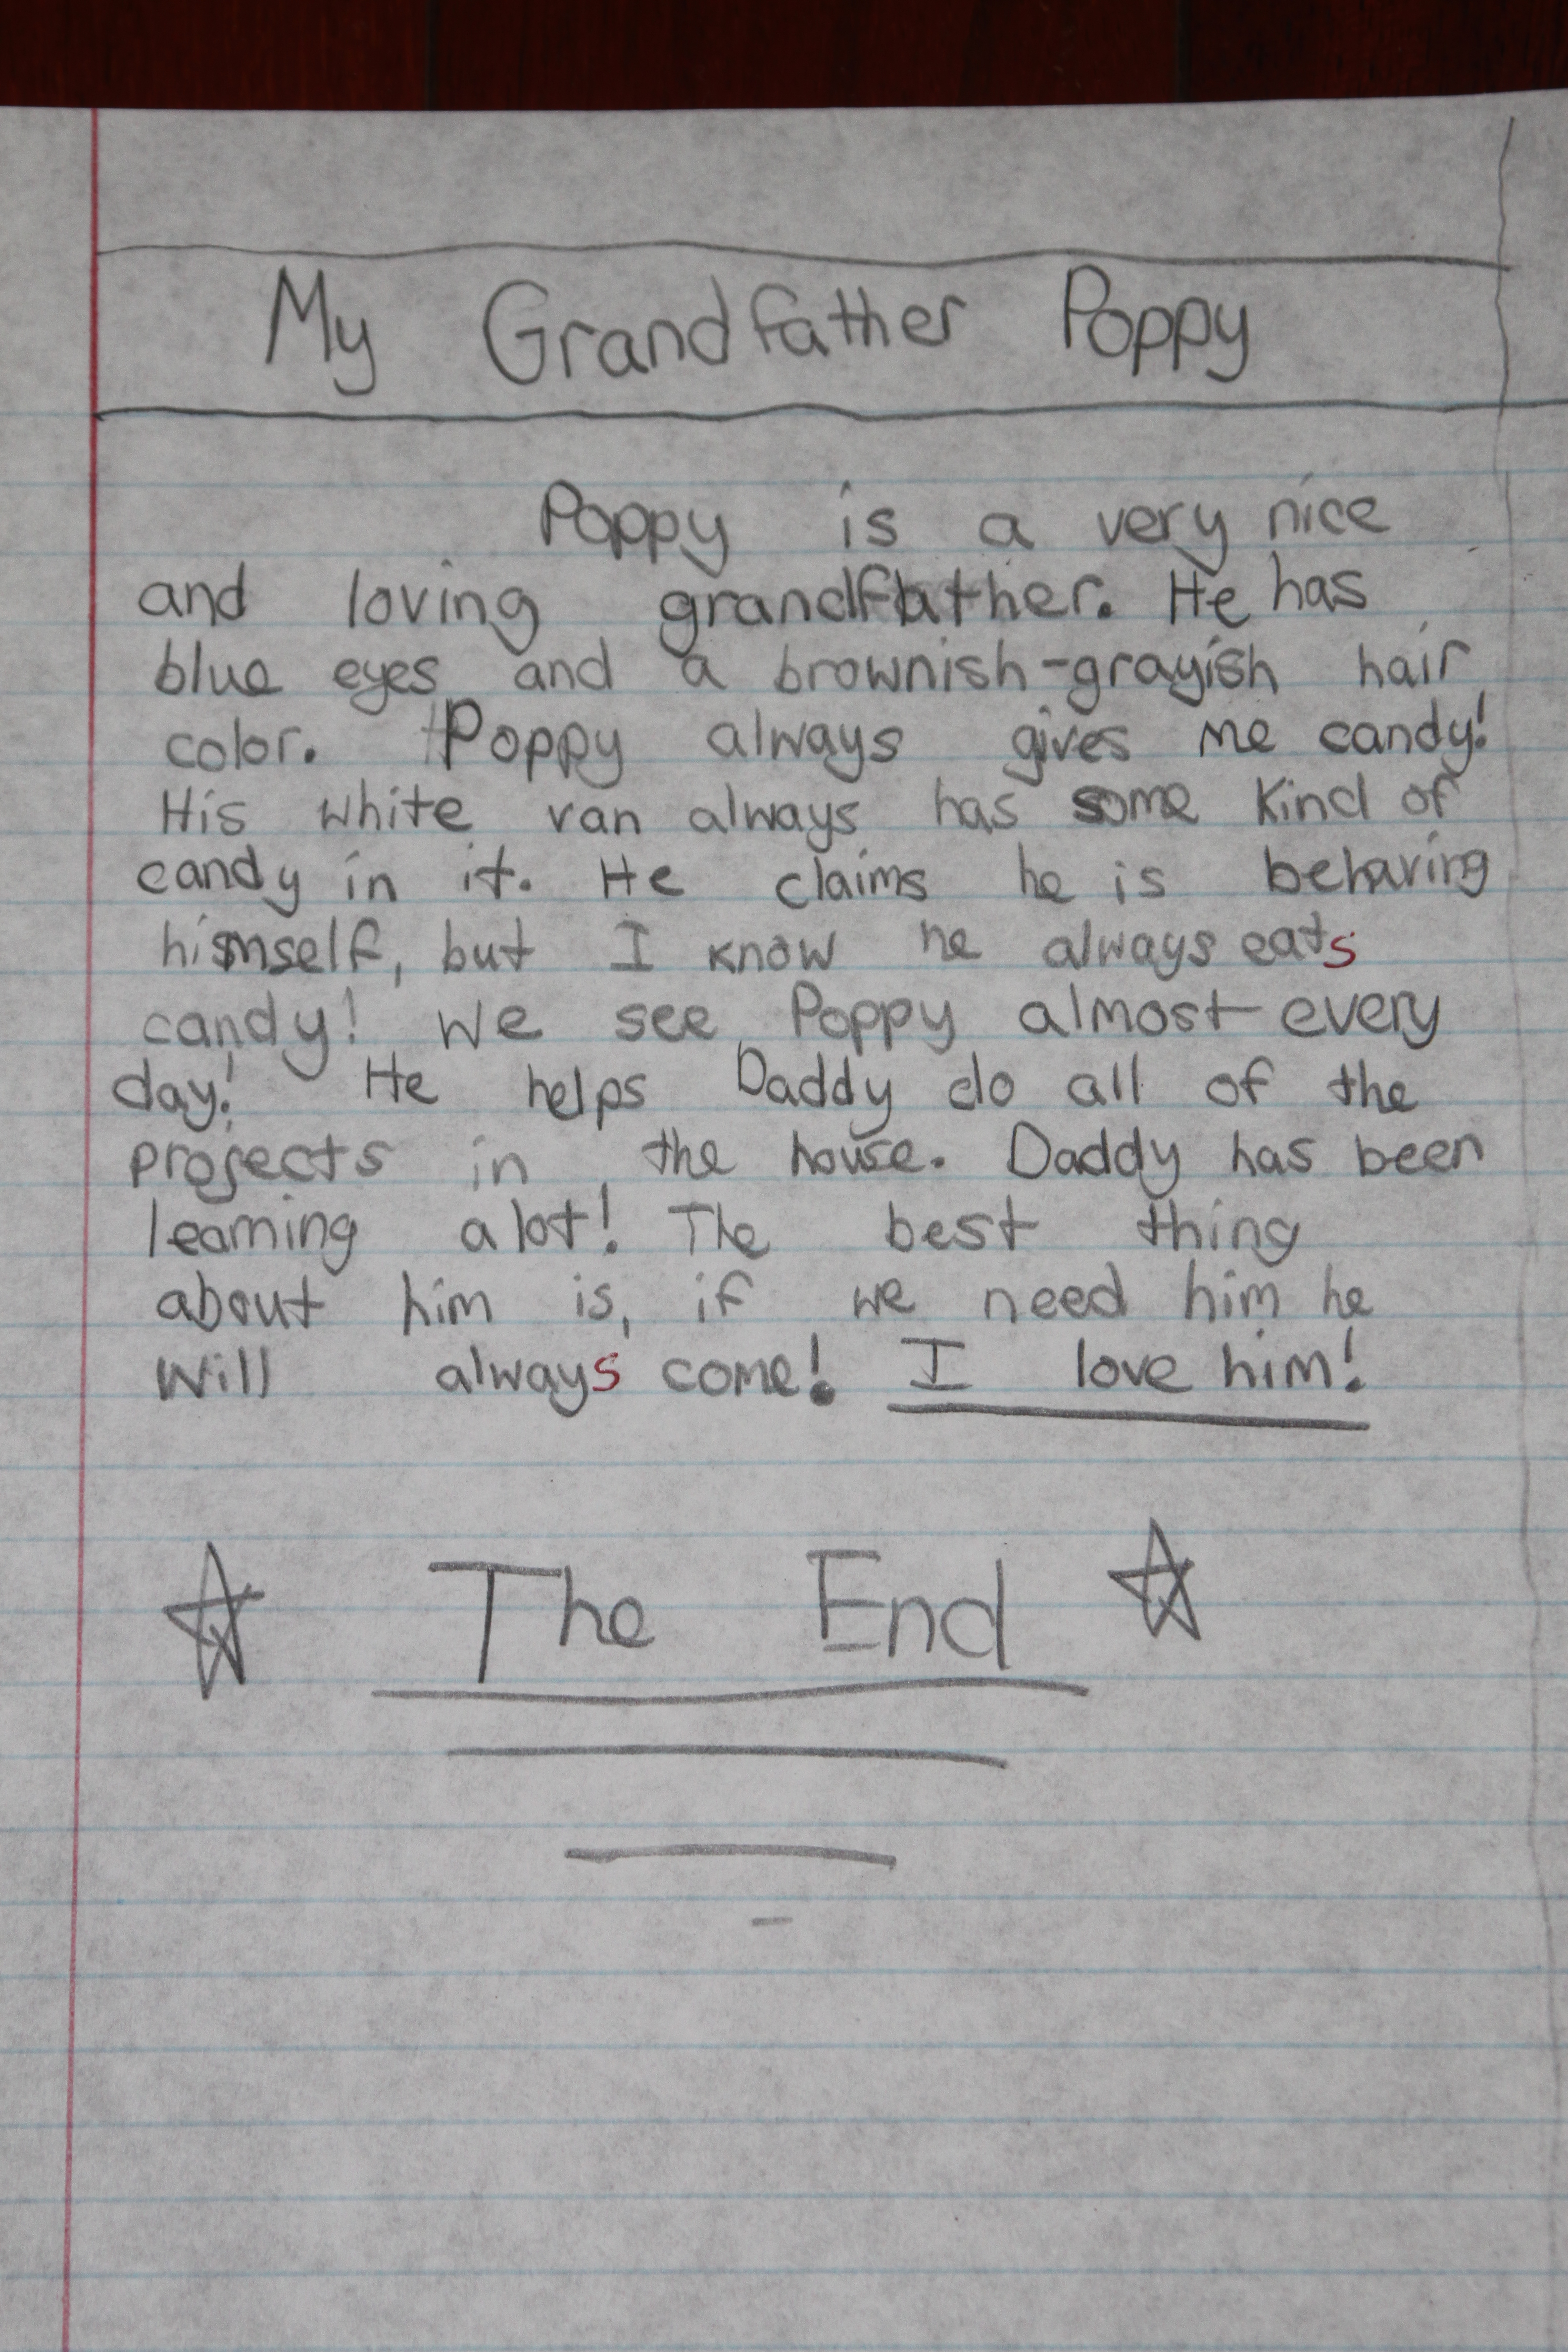 My Grandfather Poppy
Poppy is a very nice
and loving grandfather. He has
blue eyes and a brownish-grayish hair
color. Poppy always gives me candy!
His white van always has some kind of
candy in it. He claims he is behaving
himself, but I know he always eats
candy! We see Poppy almost every
day! He helps Daddy do all of the
projects in the house. Daddy has been
learning alot! The best thing
about him is, if we need him he
will always come! I love him!
The End